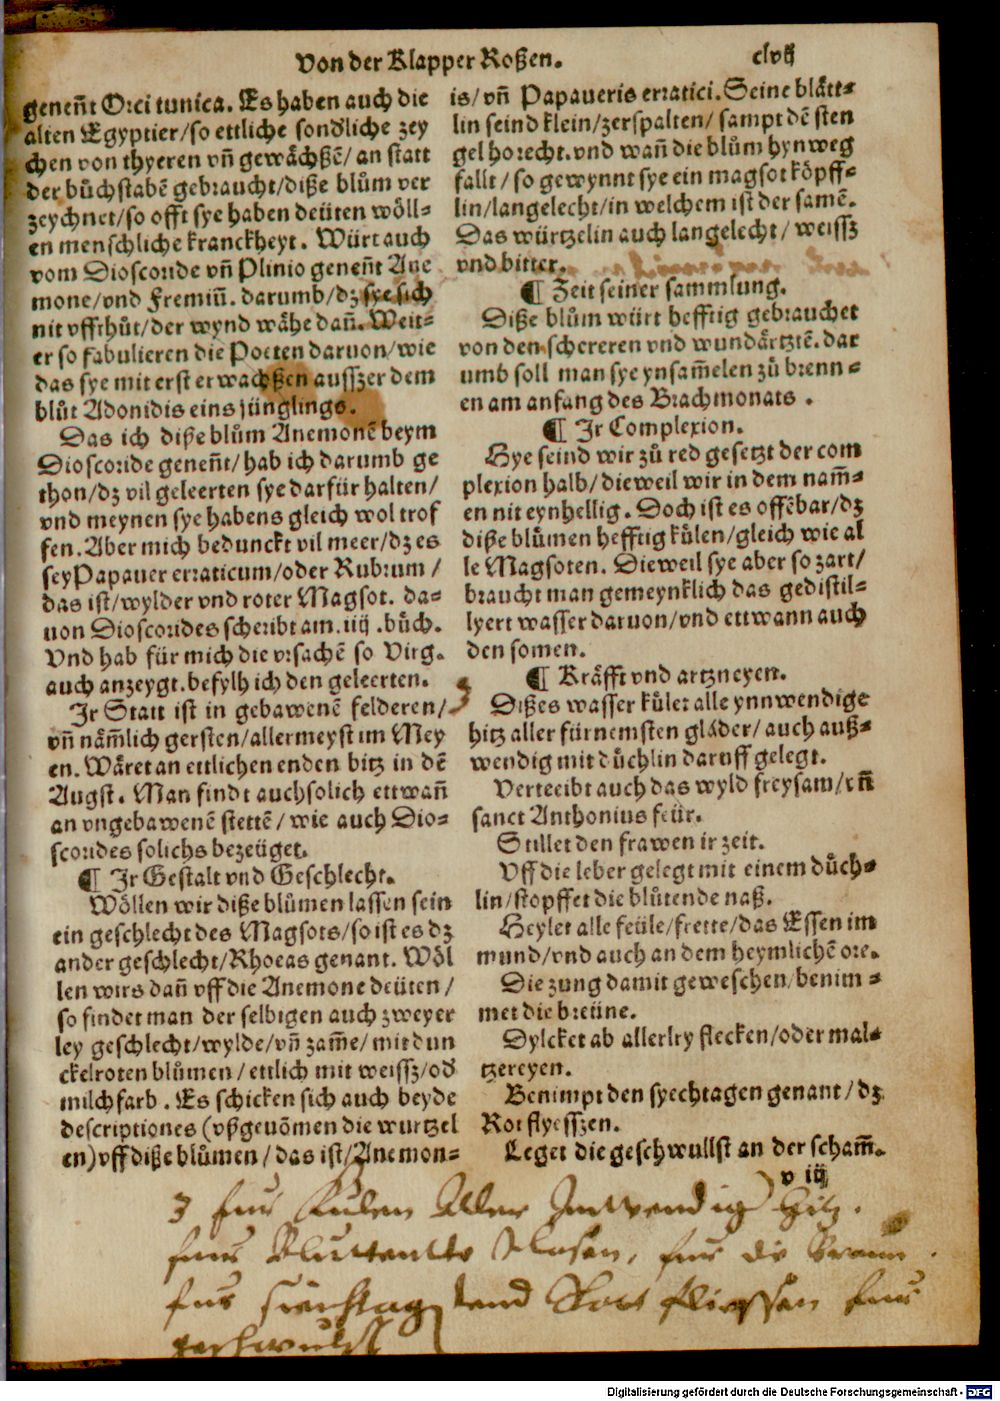 Von der Klapper Roßen. clvij
geneñt Orci tunica. Es haben auch die
alten Egyptier/so ettliche sondliche zey
chen von thyeren vñ gewächßē/an statt
der bůchstabē gebraucht/diße blům ver
zeychnet/so offt sye haben deüten wöll=
en menschliche kranckheyt. Würt auch
vom Dioscoride vñ Plinio geneñt Ane
mone/vnd Fremiū. darumb/dz sye sich
nit vffthůt/der wynd wähe dañ. Weit=
er so fabulieren die Poeten daruon/wie
das sye mit erst erwachßen ausszer dem
blůt Adonidis eins jünglings.
Das ich diße blům Anemonē beym
Dioscoride geneñt/hab ich darumb ge
thon/dz vil geleerten sye darfür halten/
vnd meynen sye habens gleich wol trof
fen. Aber mich bedunckt vil meer/dz es
sey Papauer erraticum/oder Rubrum/
das ist/wylder vnd roter Magsot. da=
uon Dioscorides schribt am .iiij .bůch.
Vnd hab für mich die vrsachē so Virg.
auch anzeygt. befylh ich den geleerten.
Jr Statt ist in gebawenē felderen/
vñ nām̄lich gersten/allermeyst im Mey
en. Wäret an ettlichen enden bitz in dē
Augst. Man findt auch solich ettwañ
an vngebawenē stettē/wie auch Dio=
scorides solichs bezeüget.
¶ Jr Gestalt vnd Geschlecht.
Wöllen wir diße blůmen lassen sein
ein geschlecht des Magsots/so ist es dz
ander geschlecht/Rhoeas genant. Wöl
len wirs dañ vff die Anemone deüten/
so findet man der selbigen auch zweyer
ley geschlecht/wylde/vñ zam̄e/mit dun
ckelroten blůmen/ettlich mit weissz/od
milchfarb. Es schicken sich auch beyde
descriptiones (vßgenōmen die wurtzel
en) vff diße blůmen/das ist/Anemon=
is/vñ Papaueris erratici. Seine blått=
lin seind klein/zerspalten/sampt dē sten
gel horecht. vnd wañ die blům hynweg
fallt/so gewynnt sye ein magsot köpff=
lin/langelecht/in welchem ist der samē.
Das würtzelin auch langelecht/weissz
vnd bitter.
¶ Zeit seiner sammlung.
Diße blům würt hefftig gebrauchet
von den schereren vnd wundärtztē. dar
umb soll man sye ynsam̄elen zů brenn=
en am anfang des Brachmonats.
¶ Jr Complexion.
Hye seind wir zů red gesetzt der com
plexion halb/dieweil wir in dem nam̄=
en nit eynhellig. Doch ist es offēbar/dz
diße blůmen hefftig külen/gleich wie al
le Magsoten. Dieweil sye aber so zart/
braucht man gemeynklich das gedistil=
lyert wasser daruon/vnd ettwann auch
den somen.
¶ Kräfft vnd artzneyen.
3 Dißes wasser kület alle ynnwendige
hitz aller fürnemsten glåder/auch auß=
wendig mit důchlin daruff gelegt.
Verteeibt auch das wyld freysam/vñ
sanct Anthonius feür.
Stillet den frawen ir zeit.
Vff die leber gelegt mit einem důch=
lin/stopffet die blůtende naß.
Heylet alle feüle/frette/das Essen im
mund/vnd auch an dem heymlichē ore.
Die zung damit geweschen/benim=
met die breüne.
Dylcket ab allerley flecken/oder mal=
tzereyen.
Benimpt den syechtagen genant/dz
Rot flyesszen.
Leget die geschwullst an der scham̄.
v iij
3 fur Kulen Aller Innwendig Hitz.
fur Bluttentte Nasen, fur die Breun.
fur siechtag dend Rott fliessen fur
geschwulst
Digitalisierung gefördert durch die Deutsche Forschungsgemeinschaft - DFG